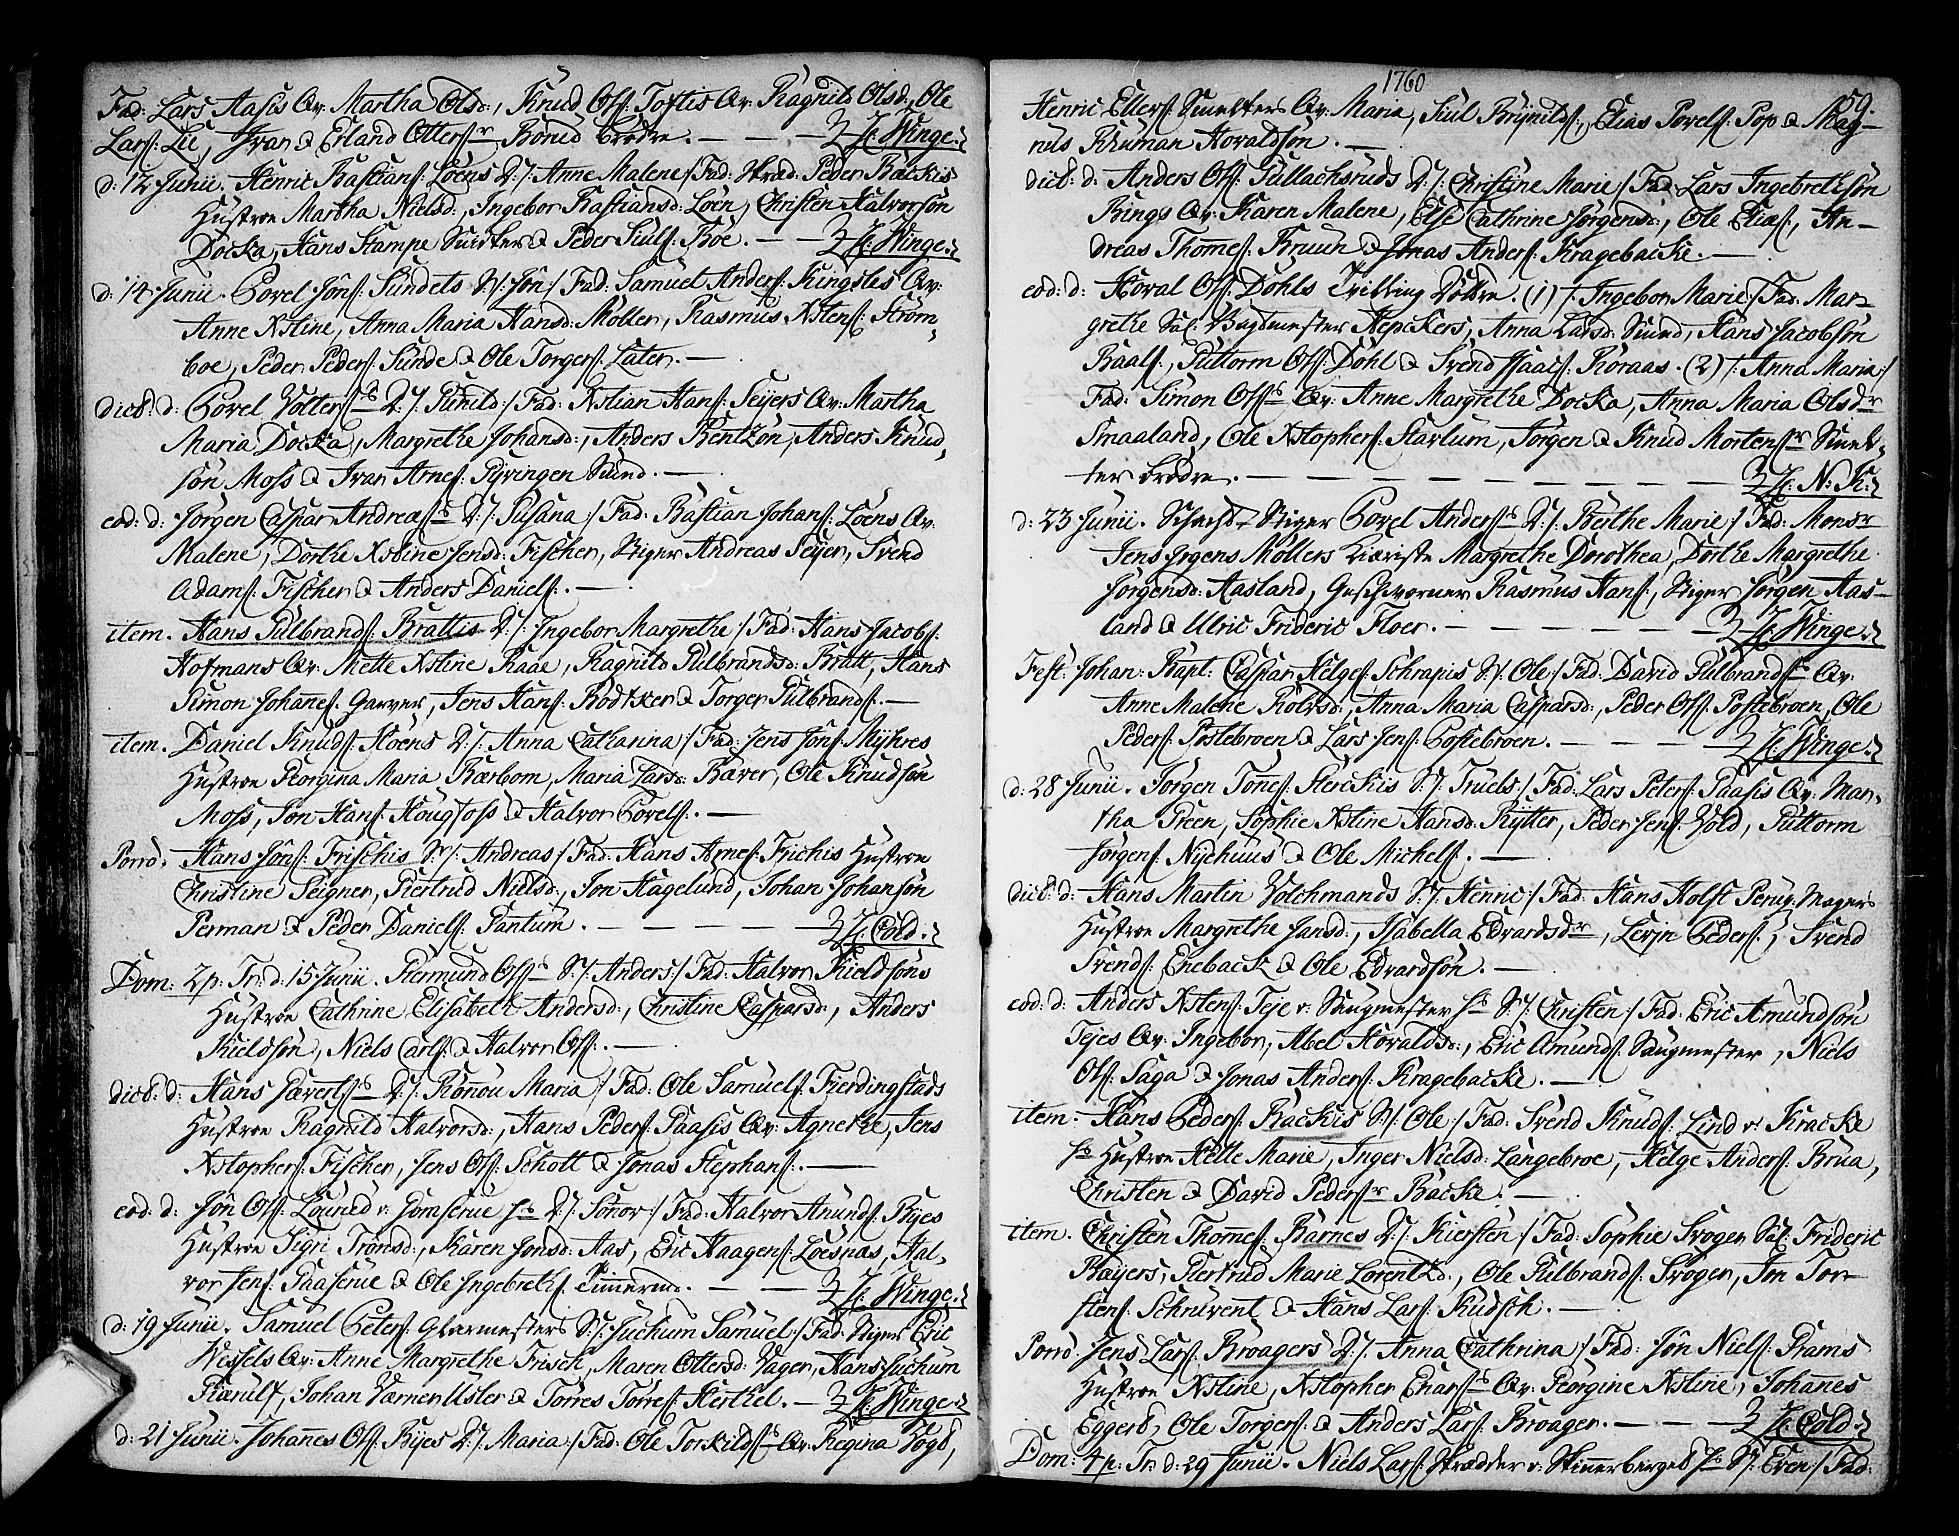 Fad: Lars Aasis Qv: Martha Olsd:, Knud Olss: Toftis Qv: Ragnild Olsd:, Ole
Larss: Lie, Ivar & Erland Otterss:r Bonid brødre. — — — H: Winge.
d: 12 Junii. Henric Bastianss: Löens D:/: Anne Malene/: Fad: Peder Backis
Hustroe Martha Nielsd:, Ingebor Bastiansd: Löen, Christen Halvorsön
Docka, Hans Stampe Smelter & Peder Siulss: Böe. — — H: Winge.
d: 14 Junii. Povel Jönss: Sundets S:/: Jön/: Fad: Samuel Anderss: Kingsles Qv:
Anne Xstine, Anna Maria Hansd: Möller, Rasmus Xstenss: Ström-
boe, Peder Pederss: Sunde & Ole Torgerss: Sater. —
dict: d: Povel Volterss:s D:/: Gunild:/ Fad: Xstian Hanss: Seyers Qv: Martha
Maria Docka, Margrethe Johansd:, Anders Bentzön, Anders Knud-
sön Moss & Ivar Arness: Gyvingen Smed. —
eod: d: Jörgen Caspar Andreæss:s D:/: Susana/: Fad: Bastian Johanss: Löens Qv:
Malene, Dorthe Xstine Jensd: Fischer, Stiger Andreas Seyer, Svend
Adamss: Fischer & Anders Danielss:. —
item. Hans Gulbrandss: Brattis D:/: Ingebor Margrethe/: Fad: Hans Jacobss:
Hofmans Qv: Mette Xstine Raae, Ragnild Gulbrandsd: Bratt, Hans
Simon Johaness: Garver, Jens Hanss: Rödtker & Torger Gulbrandss:. —
item. Daniel Knudss: Hoens D:/: Anna Catharina/: Fad: Jens Jönss: Myhres
Hustroe Georgina Maria Bærbom, Maria Larsd: Bæver, Ole Knudsön
Moss, Jon Hanss: Hougfoss & Halvor Povelss:. —
Porrò. Hans Jönss: Frischis S:/: Andreas/: Fad: Hans Arness: Frichis Hustroe
Christine Seigner, Giertrud Nielsd:, Jon Hagelund, Johan Johansön
Perman & Peder Danielss: Fantum. — — — — H: Cold.
Dom: 2 p: Tr: d: 15 Junii. Giermund Olss:s S:/: Anders/: Fad: Halvor Kieldsöns
Hustroe Cathrine Elisabeth Andersd:, Christine Caspersd:, Anders
Kieldsön, Niels Carlss: & Halvor Olss:. —
dict: d: Hans Sævertss:s D:/: Rönou Maria/: Fad: Ole Samuelss: Fierdingstads
Hustroe Ragnild Halvorsd:, Hans Pederss: Paasis Qv: Agnethe, Jens
Xstopherss: Fischer, Jens Olss: Schott & Jonas Stephanss:. —
eod: d: Jön Olss: Lounud v: Jomserue hs D:/: Sönor:/ Fad: Halvor Amundss: Byes
Hustroe Sigri Trönsd:, Karen Jonsd: Aas, Eric Haagenss: Loesnæs, Hal-
vor Jenss: Paaserue & Ole Ingebrethss: Timmermd. — — H: Winge.
d: 19 Junii. Samuel Peterss: Glarmesters S:/: Juchum Samuel:/ Fad: Stiger Eric
Wessels Qv: Anne Margrethe Frisch, Maren Ottersd: Vager, Hans Juchum
Flærult, Johan Værner Usler & Torres Torress: Hertkel. — H: Winge.
d: 21 Junii. Johannes Olss: Byes D:/: Maria/: Fad: Ole Torkildss:s Qv: Regina Vogt,
1760
59.
Henric Ellerss: Smelters Qv: Maria, Siul Brynildss:, Elias Povelss: Pop & Mag-
nus Truman Hovaldsön. —
dict: d: Anders Olss: Gullachsruds D:/: Christine Marie/: Fad: Lars Ingebrethsön
Rings Qv: Karen Malene, Else Cathrine Jörgensd:, Ole Eliæss:, An-
dreas Thomess: Bruun & Jonas Anderss: Kragebacke. —
eod: d: Hoval Olss: Döhls Tvilling Döttre. (1) /: Ingebor Marie/: Fad: Mar-
grethe Sal: Bygmester Hepckers, Anna Larsd: Smed, Hans Jacobsön
Baalss:, Guttorm Olss: Döhl & Svend Haalss: Roraas. (2) /: Anna Maria:/
Fad: Simon Olss:s Qv: Anne Margrethe Docka, Anna Maria Olsd:r
Smaaland, Ole Xstopherss: Starlum, Jörgen & Knud Mortenss:r Smel-
ter brødre. — — — — — — — — H: N: K:
d: 23 Junii. Schacht-Stiger Povel Anderss:s D:/: Berthe Marie/: Fad: Monsr
Jens Jrgens Möllers Kiæriste Margrethe Dorothea, Dorthe Margrethe
Jörgensd: Aasland, Geschworner Rasmus Hanss:, Stiger Jörgen Aas-
land & Ulric Frideric Floer. — — — — — H: Winge.
Fest: Johan: Bapt: Caspar Helgess: Schrapis S:/: Ole:/ Fad: David Gulbrandss:s Qv:
Anne Malene Rolvsd:, Anna Maria Caspersd:, Peder Olss: Postebroen, Ole
Pederss: Postebroen & Lars Jenss: Postebroen. — — — H: Winge.
d: 28 Junii. Jörgen Toness: Sterckis S:/: Truels:/ Fad: Lars Peterss: Paasis Qv: Mar-
tha Green, Sophie Xstine Hansd: Rytter, Peder Jenss: Vold, Guttorm
Jörgenss: Nychuus & Ole Michelss:. —
dict: d: Hans Martin Volchmands S:/: Henric:/ Fad: Hans Holst Peruqv:magers
Hustroe Margrethe Jansd:, Isabella Edvardsd:r, Lerjn Pederss:, Svend
Svendss: Eneback & Ole Edvardsön. —
eod: d: Anders Xstenss: Teje v: Saugmester hs S:/: Christen:/ Fad: Eric Amundsön
Tejes Qv: Ingebor, Abel Hovaldsd:, Eric Amundss: Saugmester, Niels
Olss: Saga & Jonas Anderss: Kragebacke. —
item. Hans Pederss: Backis S:/: Ole:/ Fad: Svend Knudss: Lind v: Kracke
hs Hustroe Helle Marie, Inger Nielsd: Langebroe, Helge Anderss: Brua,
Christen & David Pederss:r Backe. —
item. Christen Thomess: Barnes D:/: Kiersten:/ Fad: Sophie Svoger Sal: Frideric
Bayers, Giertrud Marie Lorentzd:, Ole Gulbrandss: Svoger, Jon Tor-
stenss: Schruvent & Hans Larss: Kudsch. —
Porrò. Jens Larss: Broagers D:/: Anna Cathrina/: Fad: Jön Nielss: Grams
Hustroe Xstine, Xstopher Enarss:s Qv: Georgine Xstine, Johanes
Eggert, Ole Torgerss: & Anders Larss: Broager. — — — H: Cold.
Dom: 4 p: Tr: d: 29 Junii. Niels Larss: Skrædder v: Skinnerberget hs S:/: Even:/ Fad: